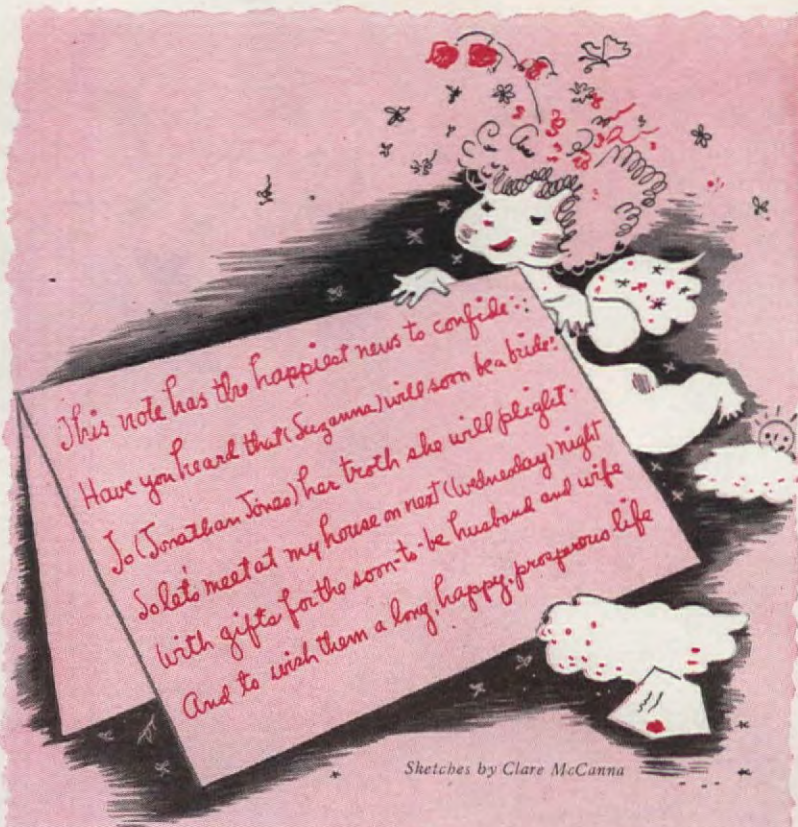 This note has the happiest news to confide:
Have you heard that (Suzanna) will soon be a bride:
To (Jonathan Jones) her troth she will plight.
So let's meet at my house on next (Wednesday) night
With gifts for the soon-to-be husband and wife
And to wish them a long, happy, prosperous life
Sketches by Clare McCanna